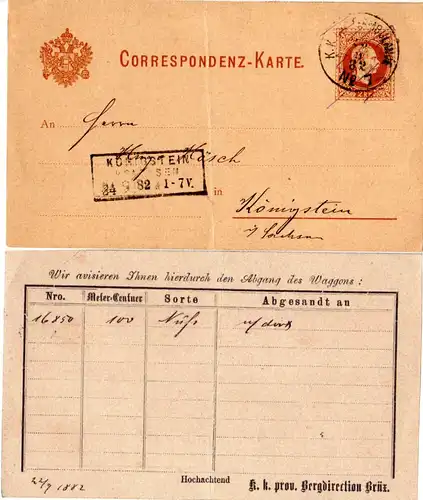 CORRESPONDENZ-KARTE.
An Herrn
Hösch
KÖNIGSTEIN
24 9 82 1-7V.
in Königstein
Sachsen
Wir avisieren Ihnen hierdurch den Abgang des Waggons:
Nro. Meter-Centner Sorte Abgesandt an
16850 100 Nuß
22/9 1882
Hochachtend
K. k. prov. Bergdirection Brüx.